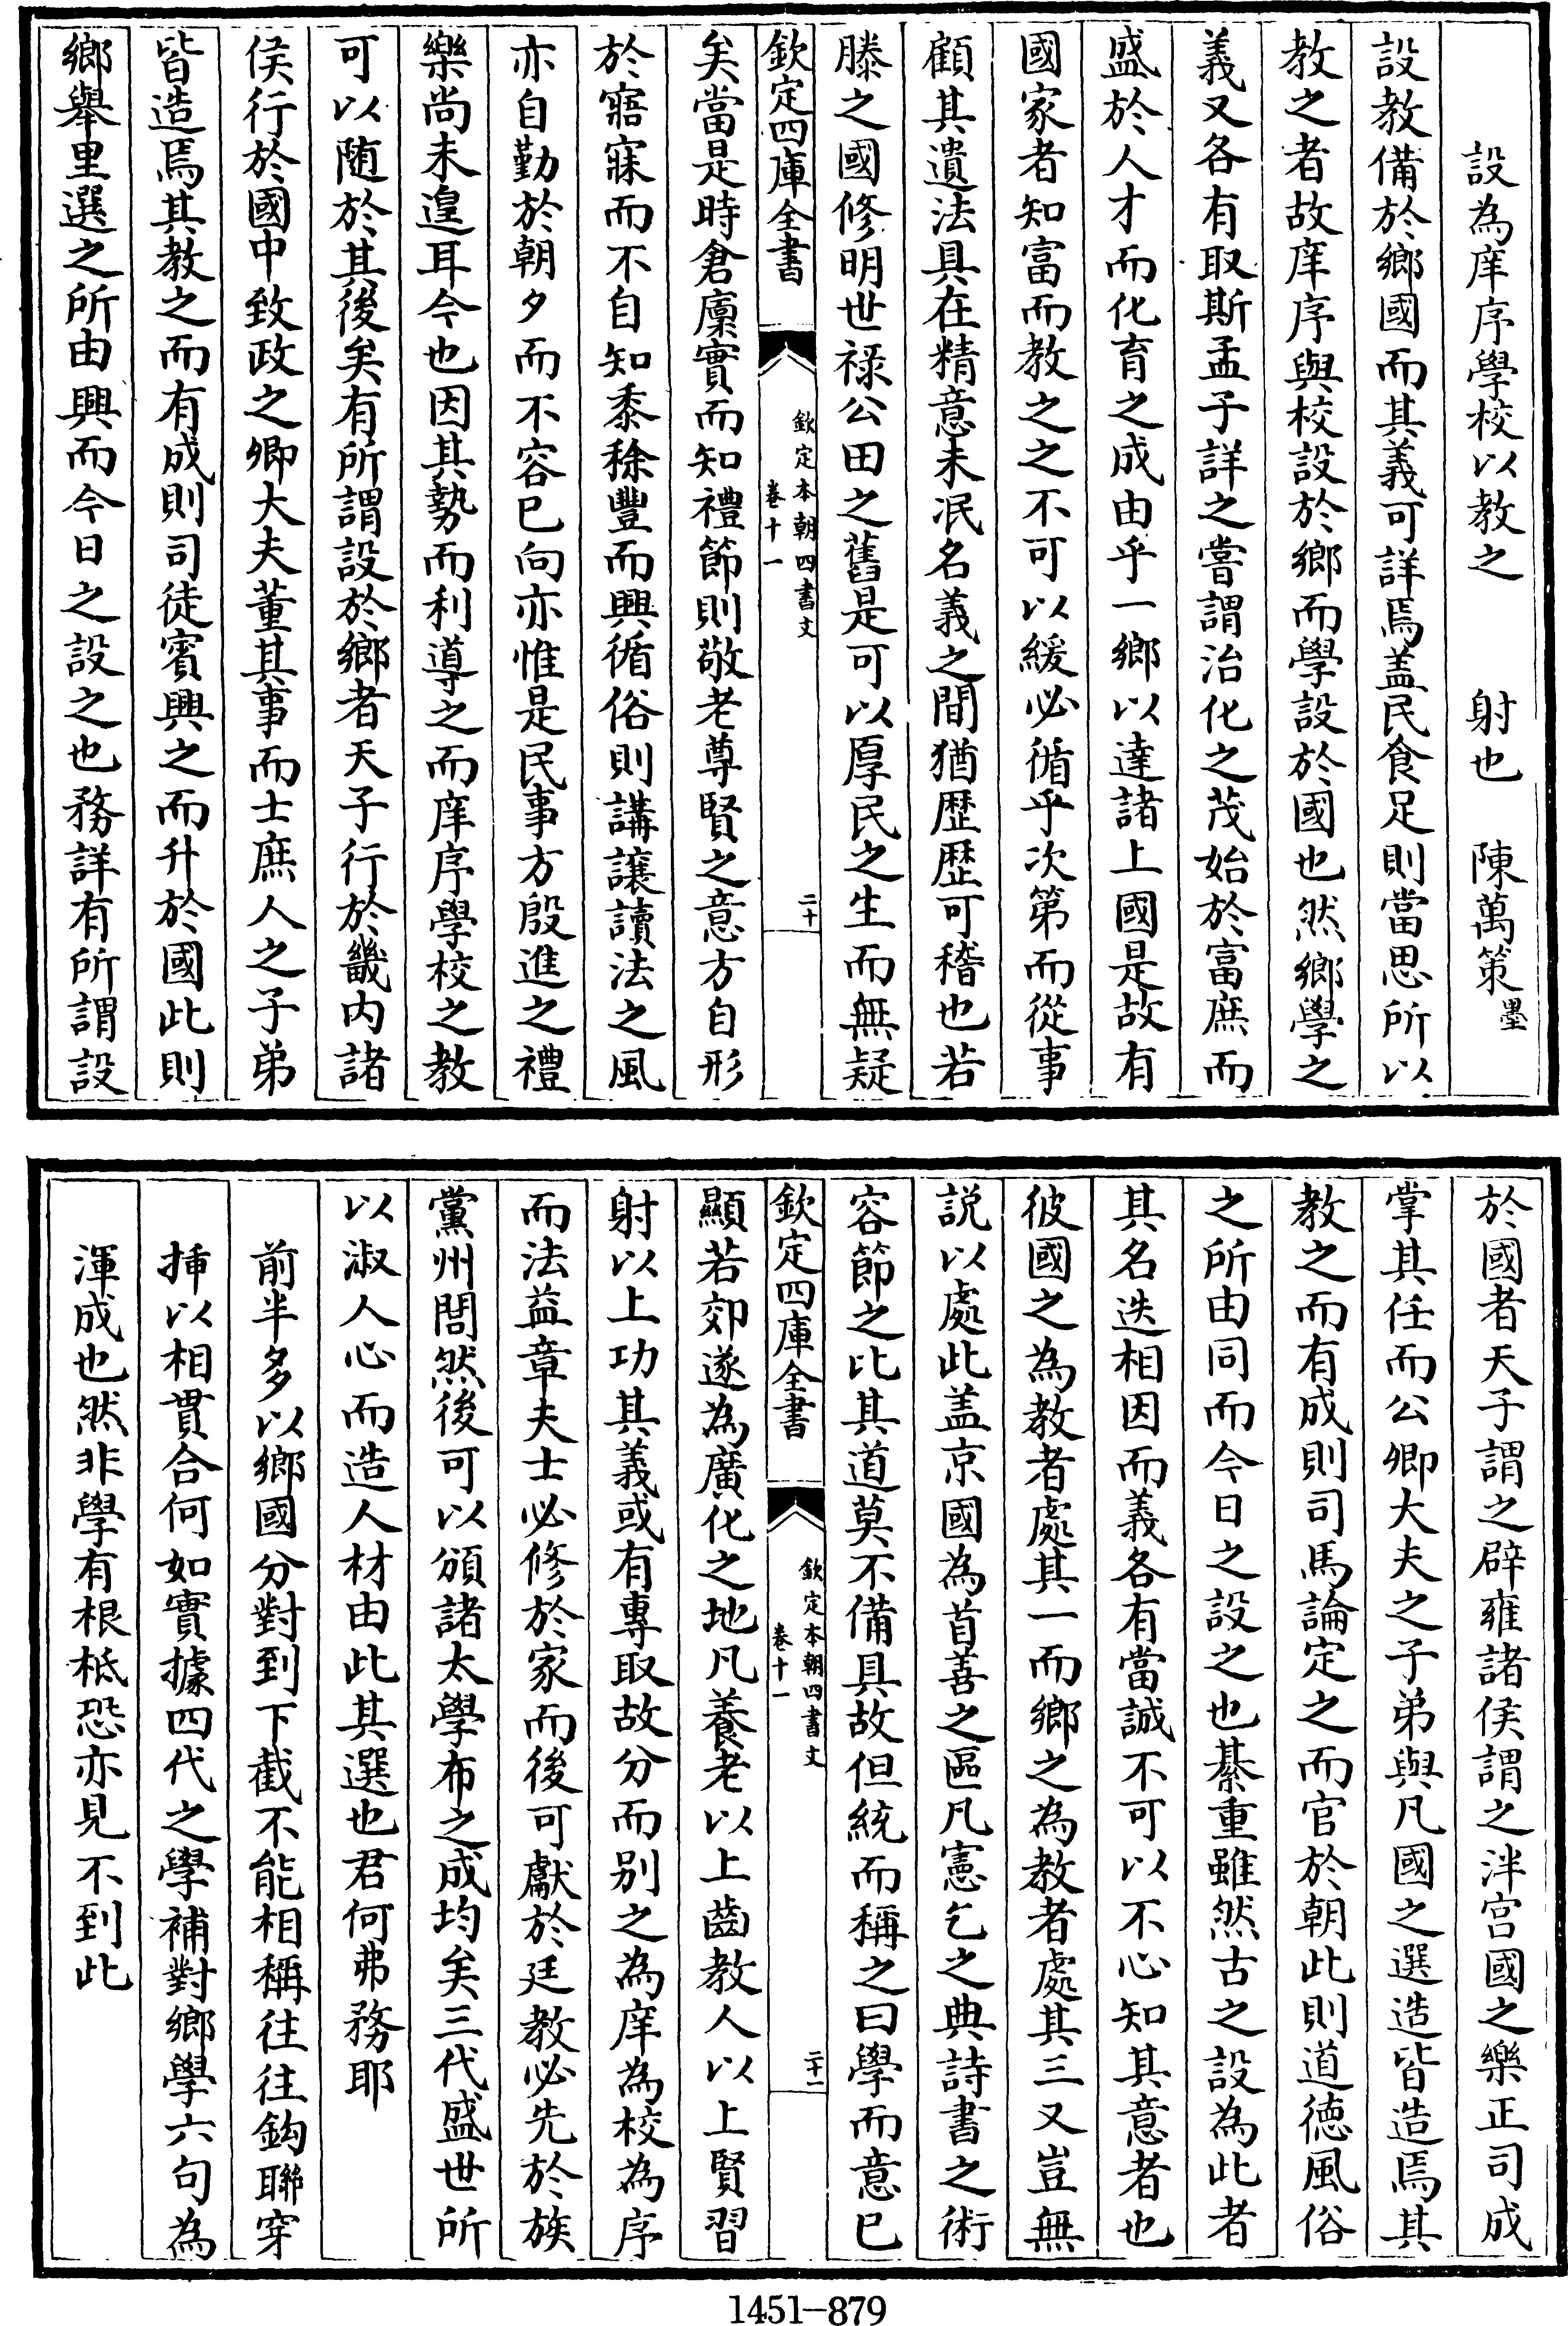 設為庠序學校以教之　射也　陳萬策墨
設教備於鄉國而其義可詳焉盖民食足則當思所以
教之者故庠序與校設於鄉而學設於國也然鄉學之
義又各有取斯孟子詳之嘗謂治化之茂始於富庶而
盛於人才而化育之成由乎一鄉以達諸上國是故有
國家者知富而教之之不可以緩必循乎次第而從事
顧其遺法具在精意未泯名義之間猶歴歴可稽也若
滕之國修明世禄公田之舊是可以厚民之生而無疑
欽定四庫全書
欽定本朝四書文
卷十一
二十
矣當是時倉廪實而知禮節則敬老尊賢之意方自形
於寤寐而不自知黍稌豐而興循俗則講讓讀法之風
亦自勤於朝夕而不容已向亦惟是民事方殷進之禮
樂尚未遑耳今也因其勢而利導之而庠序學校之教
可以随於其後矣有所謂設於鄉者天子行於畿内諸
侯行於國中致政之卿大夫董其事而士庶人之子弟
皆造焉其教之而有成則司徒賓興之而升於國此則
鄉舉里選之所由興而今日之設之也務詳有所謂設
於國者天子謂之辟雍諸侯謂之泮宫國之樂正司成
掌其任而公卿大夫之子弟與凡國之選造皆造焉其
教之而有成則司馬論定之而官於朝此則道徳風俗
之所由同而今日之設之也綦重雖然古之設為此者
其名迭相因而義各有當誠不可以不心知其意者也
彼國之為教者處其一而鄉之為教者處其三又豈無
説以處此盖京國為首善之區凡憲乞之典詩書之術
容節之比其道莫不備具故但統而稱之曰學而意已
欽定四庫全書
欽定本朝四書文
卷十一
二十一
顯若郊遂為廣化之地凡養老以上齒教人以上賢習
射以上功其義或有專取故分而别之為庠為校為序
而法益章夫士必修於家而後可獻於廷教必先於族
黨州閭然後可以頒諸太學布之成均矣三代盛世所
以淑人心而造人材由此其選也君何弗務耶
前半多以鄉國分對到下截不能相稱往往鈎聯穿
揷以相貫合何如實據四代之學補對鄉學六句為
渾成也然非學有根柢恐亦見不到此
1451-879